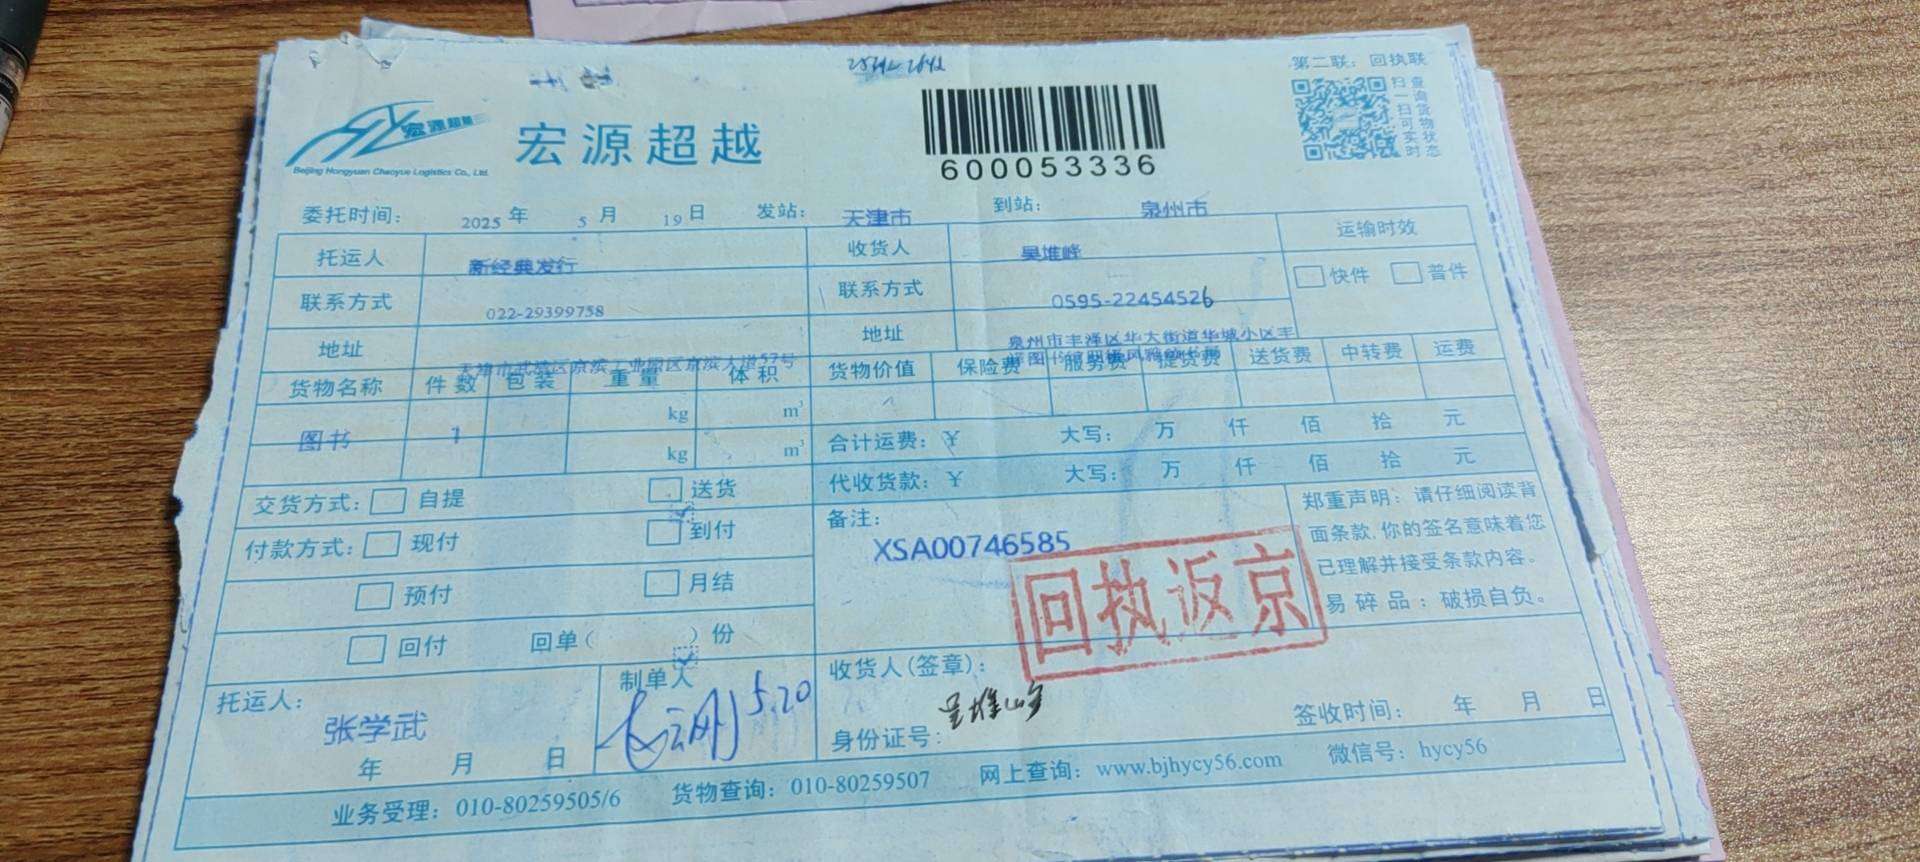 第二联：回执联
宏源超越
Beijing Hongyuan Chaoyue Logistics Co., Ltd.
宏源超越
600053336
扫一扫可实时
查询货物状态
委托时间： 2025 年 5 月 19 日 发站： 天津市 到站： 泉州市
托运人 新经典发行 收货人 吴堆峰 运输时效
联系方式 022-29399758 联系方式 0595-22454526 快件 普件
地址 天津市武清区京滨工业园区京滨大道57号 地址 泉州市丰泽区华大街道华城小区丰
货物名称 件数 包装 重量 体积 货物价值 保险费 服务费 提货费 送货费 中转费 运费
图书 1 kg m³
kg m³
合计运费：¥ 大写： 万 仟 佰 拾 元
代收货款：¥ 大写： 万 仟 佰 拾 元
交货方式： 自提 送货
付款方式： 现付 到付
预付 月结
回付 回单（ ）份
备注：
XSA00746585
回执返京
郑重声明：请仔细阅读背
面条款,你的签名意味着您
已理解并接受条款内容。
易碎品：破损自负。
托运人：
张学武
年 月 日
制单人
5.20
收货人(签章)：
身份证号：
签收时间： 年 月 日
业务受理：010-80259505/6 货物查询：010-80259507 网上查询：www.bjhycy56.com 微信号：hycy56